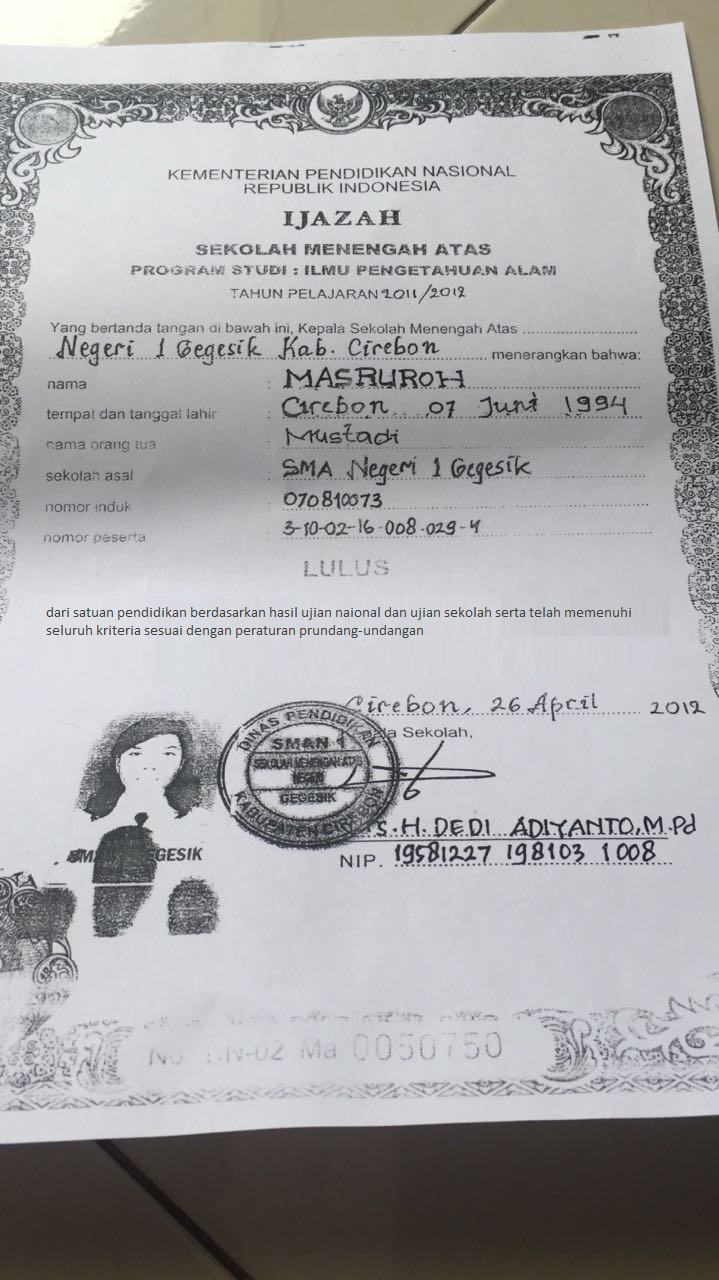 KEMENTERIAN PENDIDIKAN NASIONAL
REPUBLIK INDONESIA
IJAZAH
SEKOLAH MENENGAH ATAS
PROGRAM STUDI : ILMU PENGETAHUAN ALAM
TAHUN PELAJARAN 2011/2012
Yang bertanda tangan di bawah ini, Kepala Sekolah Menengah Atas
Negeri 1 Gegesik Kab. Cirebon menerangkan bahwa:
nama : MASRUROH
tempat dan tanggal lahir : Cirebon 07 Juni 1994
nama orang tua : Mustadi
sekolah asal : SMA Negeri 1 Gegesik
nomor induk : 070810073
nomor peserta : 3-10-02-16-008-029-4
LULUS
dari satuan pendidikan berdasarkan hasil ujian naional dan ujian sekolah serta telah memenuhi
seluruh kriteria sesuai dengan peraturan prundang-undangan
Cirebon, 26 April 2012
Sekolah,
DINAS PENDIDIKAN
SMAN 1
SEKOLAH MENENGAH ATAS
NEGERI
GEGESIK
KABUPATEN CIREBON
H. DEDI ADIYANTO, M.Pd
NIP. 19581227 198103 1 008
GESIK
No. 02 Ma 0050750